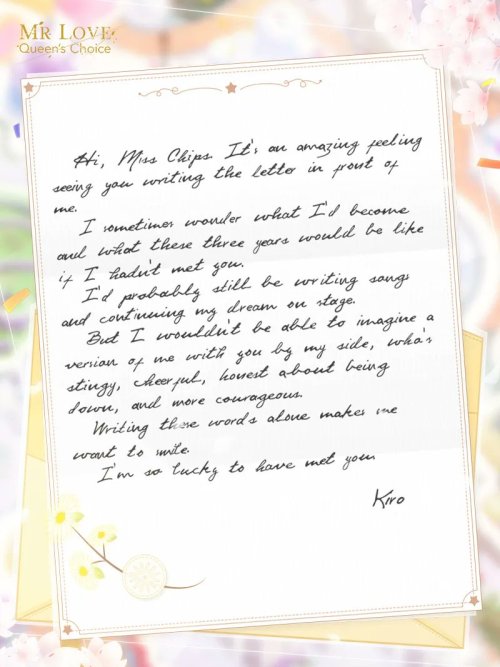 MR LOVE
Queen's Choice
Hi, Miss Chips. It's an amazing feeling
seeing you writing the letter in front of
me.
I sometimes wonder what I'd become
and what these three years would be like
if I hadn't met you.
I'd probably still be writing songs
and continuing my dream on stage.
But I wouldn't be able to imagine a
version of me with you by my side, who's
stingy, cheerful, honest about being
down, and more courageous.
Writing these words alone makes me
want to smile.
I'm so lucky to have met you.
Kiro